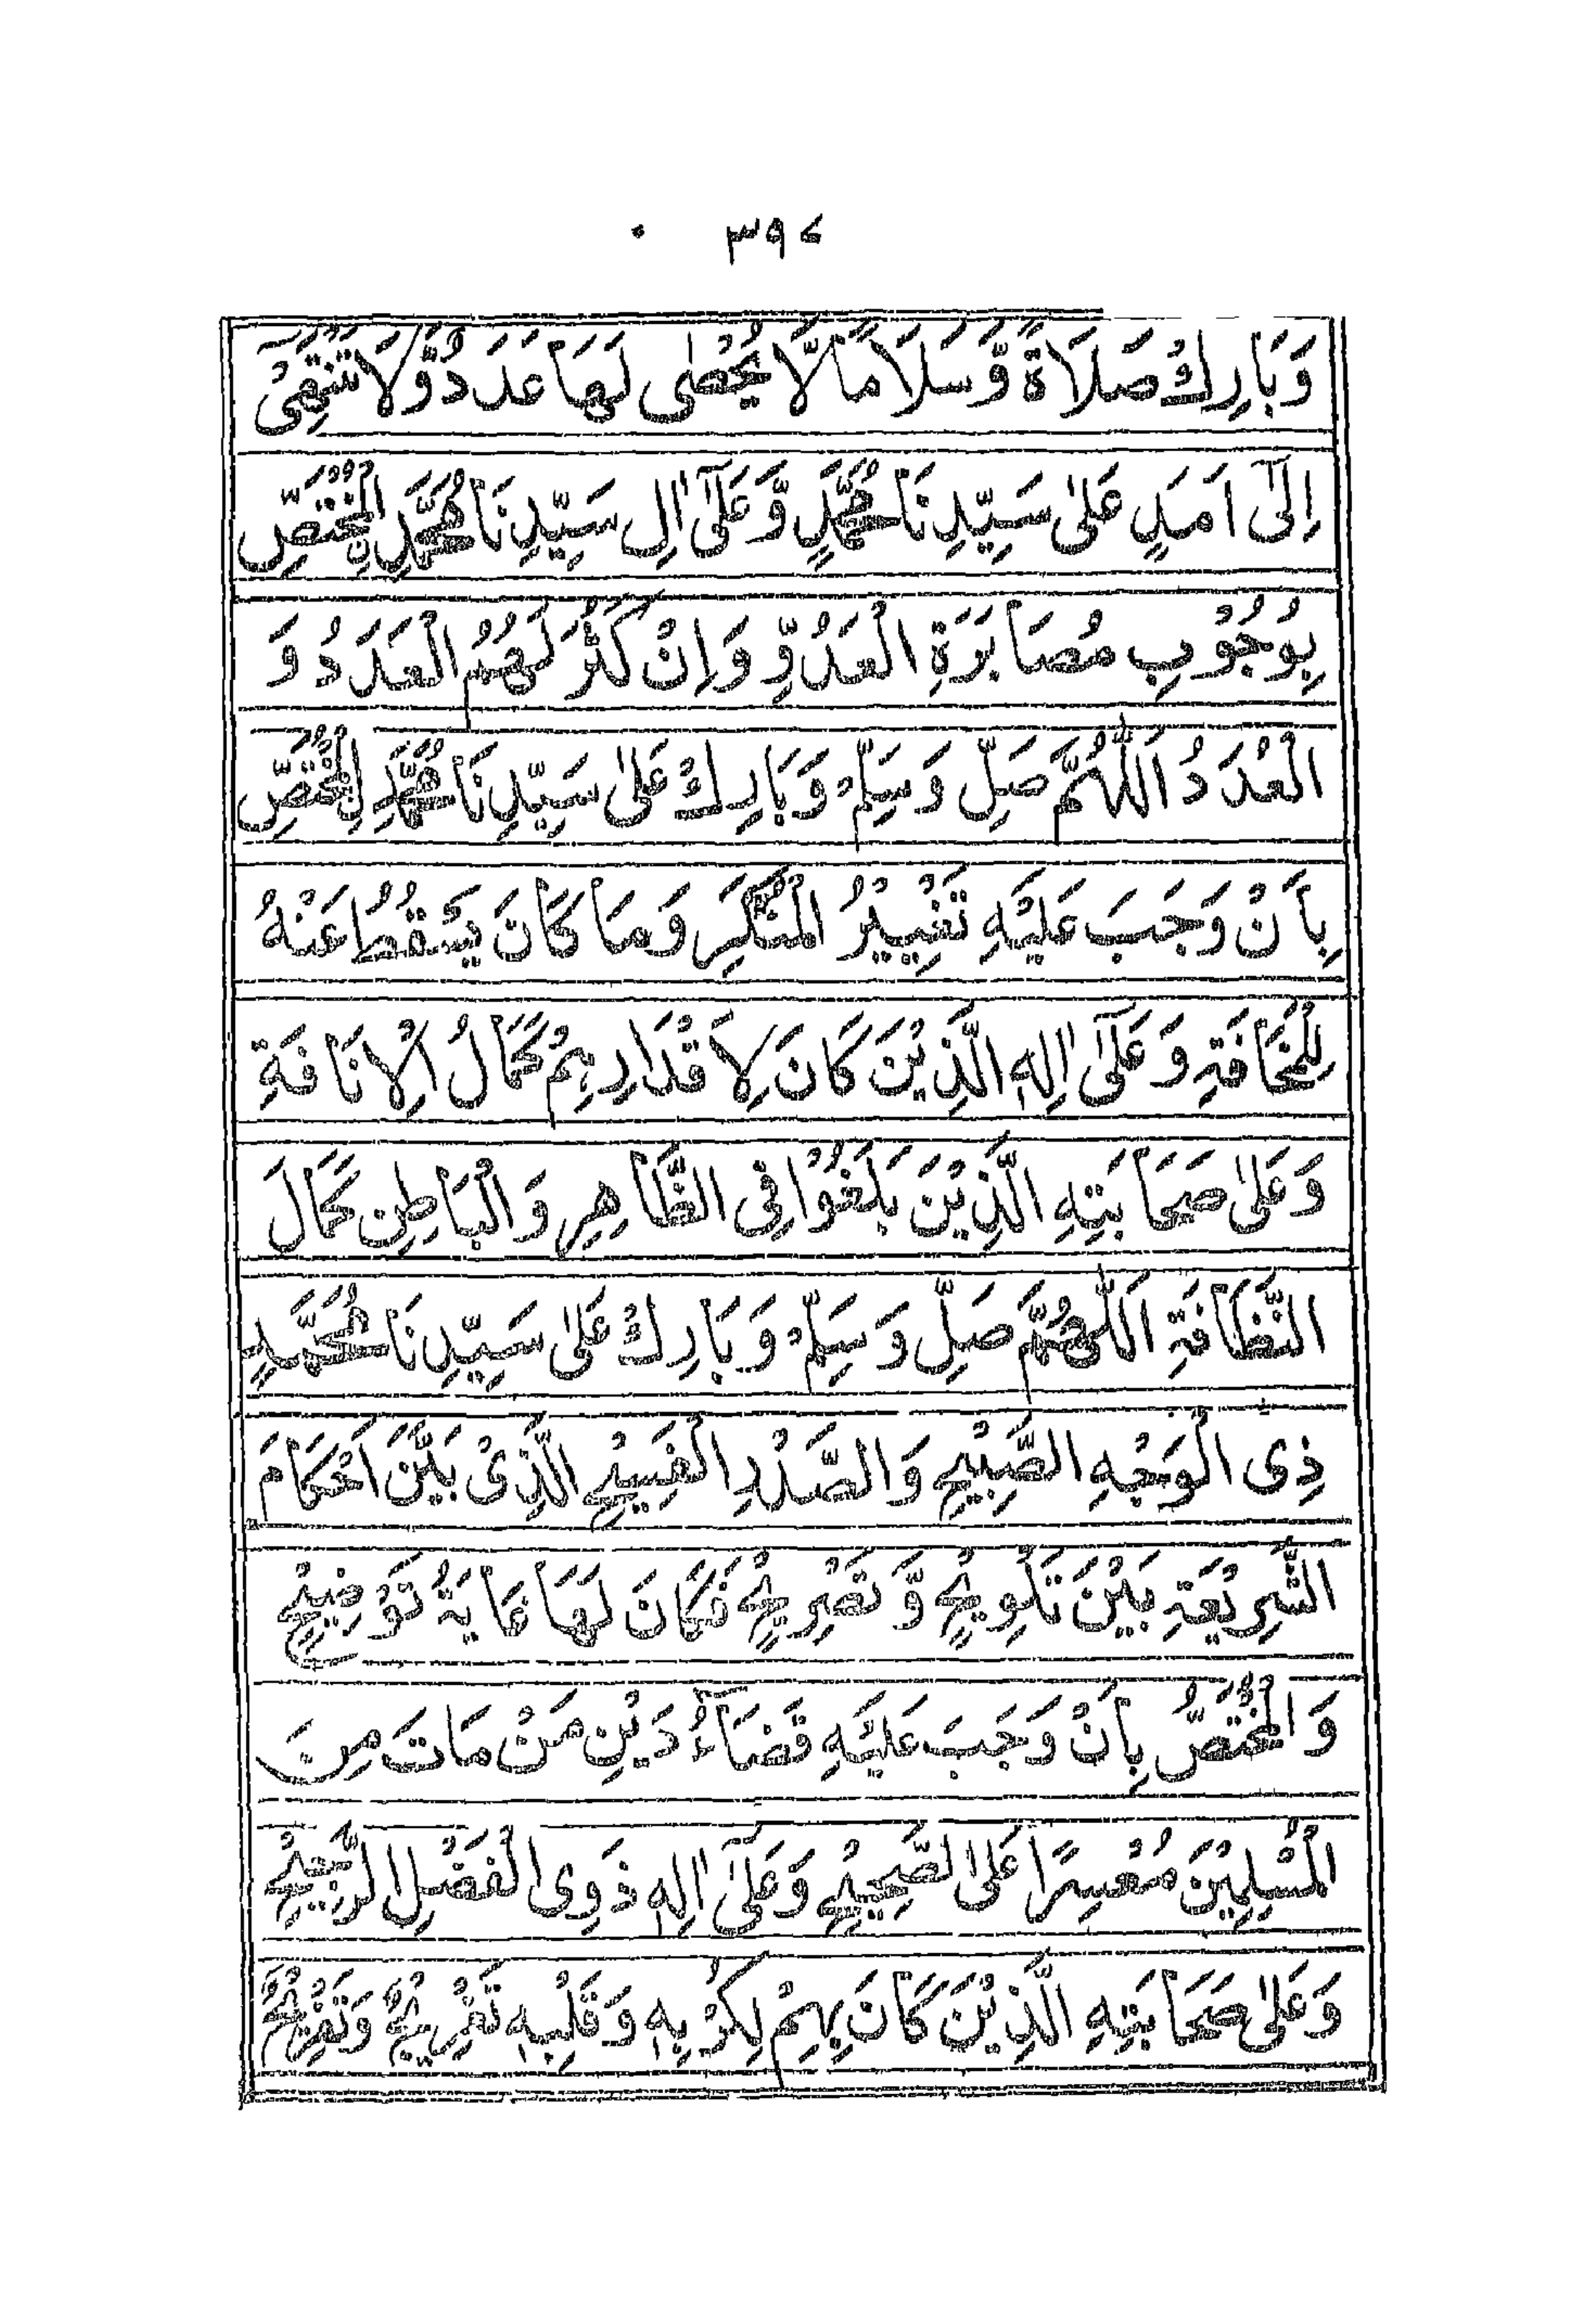 ٣٩٤
وَبَارِكْ صَلَاةً وَّسَلَامًا لَّا يُحْصٰى لَهَا عَدَدٌ وَّلَا تَنْتَهِىْ
اِلٰٓى اَمَدٍ عَلٰى سَيِّدِنَا مُحَمَّدٍ وَّعَلٰٓى اٰلِ سَيِّدِنَا مُحَمَّدِ نِ الْمُخْتَصِّ
بِوُجُوْبِ مُصَابَرَةِ الْعَدُوِّ وَاِنْ كَثُرَ لَهُمُ الْعَدَدُ وَ
الْعُدَدُ اَللّٰهُمَّ صَلِّ وَسَلِّمْ وَبَارِكْ عَلٰى سَيِّدِنَا مُحَمَّدِ نِ الْمُخْتَصِّ
بِاَنْ وَجَبَ عَلَيْهِ تَغْيِيْرُ الْمُنْكَرِ وَمَا كَانَ يَسْقُطُ عَنْهُ
لِلْمَخَافَةِ وَعَلٰٓى اٰلِهِ الَّذِيْنَ كَانَ لِاَقْدَارِهِمْ كَمَالُ الْاِنَافَةِ
وَعَلٰى صَحَابَتِهِ الَّذِيْنَ بَلَغُوْا فِى الظَّاهِرِ وَالْبَاطِنِ كَمَالَ
النَّظَافَةِ اَللّٰهُمَّ صَلِّ وَسَلِّمْ وَبَارِكْ عَلٰى سَيِّدِنَا مُحَمَّدٍ
ذِى الْوَجْهِ الصَّبِيْحِ وَالصَّدْرِ الْفَسِيْحِ الَّذِىْ بَيَّنَ اَحْكَامَ
الشَّرِيْعَةِ بَيْنَ تَلْوِيْحٍ وَّتَصْرِيْحٍ فَكَانَ لَهَا غَايَةُ تَوْضِيْحٍ
وَالْمُخْتَصُّ بِاَنْ وَجَبَ عَلَيْهِ قَضَآءُ دَيْنِ مَنْ مَاتَ مِنَ
الْمُسْلِمِيْنَ مُعْسِرًا عَلَى الصَّحِيْحِ وَعَلٰٓى اٰلِهٖ ذَوِى الْفَضْلِ الرَّجِيْحِ
وَعَلٰى صَحَابَتِهِ الَّذِيْنَ كَانَ بِهِمْ لِكَرْبِهٖ وَقَلْبِهٖ تَفْرِيْجٌ وَتَفْرِيْحٌ